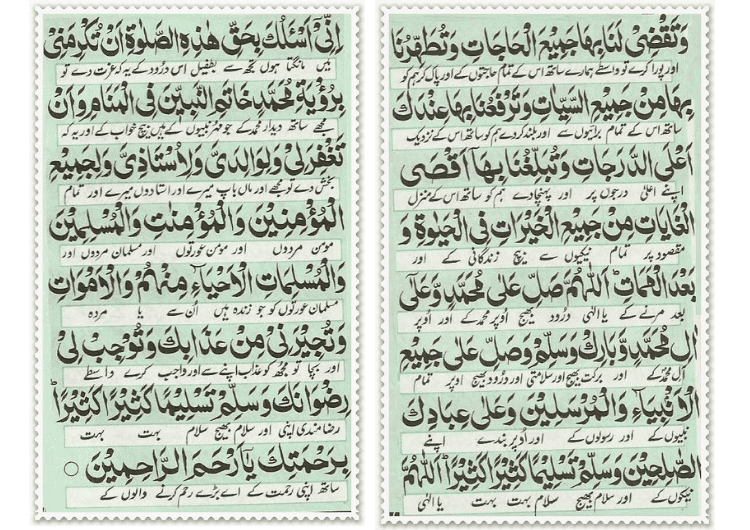 وَتَقْضِىْ لَنَا بِهَا جَمِيْعَ الْحَاجَاتِ وَتُطَهِّرُنَا
اور پورا کرے تو واسطے ہمارے ساتھ اس کے تمام حاجتوں کے اور پاک کر ہم کو
بِهَا مِنْ جَمِيْعِ السَّيِّاٰتِ وَتَرْفَعُنَا بِهَا عِنْدَكَ
ساتھ اس کے تمام برائیوں سے اور بلند کر دے ہم کو ساتھ اس کے نزدیک
اَعْلَى الدَّرَجَاتِ وَتُبَلِّغُنَا بِهَا اَقْصَى
اپنے اعلیٰ درجوں پر اور پہنچا دے ہم کو ساتھ اس کے منزل
الْغَايَاتِ مِنْ جَمِيْعِ الْخَيْرَاتِ فِى الْحَيٰوةِ وَ
مقصود پر تمام نیکیوں سے بیچ زندگانی کے اور
بَعْدَ الْمَمَاتِ ؕ اَللّٰهُمَّ صَلِّ عَلٰى مُحَمَّدٍ وَّعَلٰٓى
بعد مرنے کے یا الٰہی درُود بھیج اُوپر محمد کے اور اُوپر
اٰلِ مُحَمَّدٍ وَّبَارِكْ وَسَلِّمْ وَصَلِّ عَلٰى جَمِيْعِ
آل محمد کے اور برکت بھیج اور سلامتی اور درُود بھیج اوپر تمام
الْاَنْبِيَآءِ وَالْمُرْسَلِيْنَ وَعَلٰى عِبَادِكَ
نبیوں کے اور رسولوں کے اور اُوپر بندے اپنے
الصّٰلِحِيْنَ وَسَلِّمْ تَسْلِيْمًا كَثِيْرًا كَثِيْرًا ؕ اَللّٰهُمَّ
نیکوں کے اور سلام بھیج سلام بہت بہت یا الٰہی
اِنِّىْٓ اَسْئَلُكَ بِحَقِّ هٰذِهِ الصَّلٰوةِ اَنْ تُكْرِمَنِىْ
میں مانگتا ہوں تجھ سے بطفیل اس درُود کے یہ کہ عزت دے تو
بِرُؤْيَةِ مُحَمَّدٍ خَاتِمِ النَّبِيِّيْنَ فِى الْمَنَامِ وَاَنْ
مجھے ساتھ دیدار محمد کے جو مُہر نبیوں کے ہیں بیچ خواب کے اور یہ کہ
تَغْفِرَلِىْ وَلِوَالِدَىَّ وَلِاُسْتَاذِىْ وَلِجَمِيْعِ
بخش دے تو مجھے اور ماں باپ میرے اور استادوں میرے اور تمام
الْمُؤْمِنِيْنَ وَالْمُؤْمِنٰتِ وَالْمُسْلِمِيْنَ
مومن مردوں اور مومن عورتوں اور مسلمان مردوں اور
وَالْمُسْلِمَاتِ الْاَحْيَآءِ مِنْهُمْ وَالْاَمْوَاتِ
مسلمان عورتوں کو جو زندہ ہیں اُن سے یا مردہ
وَتُجِيْرَنِىْ مِنْ عَذَابِكَ وَتُوْجِبْ لِىْ
اور بچا تو مجھ کو عذاب اپنے سے اور واجب کرے واسطے
رِضْوَانَكَ وَسَلِّمْ تَسْلِيْمًا كَثِيْرًا كَثِيْرًا ؕ
رضامندی اپنی اور سلام بھیج سلام بہت بہت
بِرَحْمَتِكَ يَآ اَرْحَمَ الرَّاحِمِيْنَ ○
ساتھ اپنی رحمت کے اے بڑے رحم کرنے والوں کے